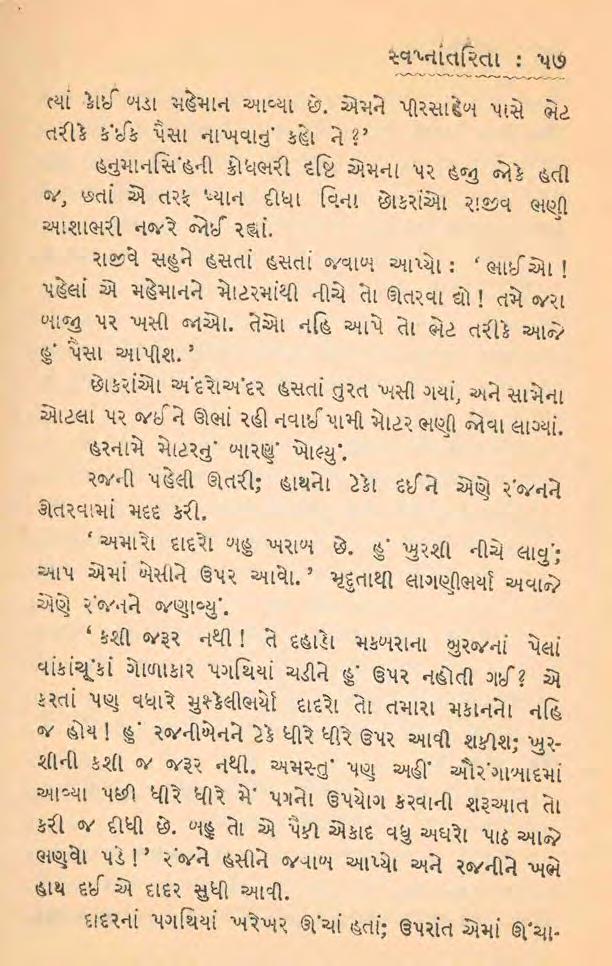 સ્વપ્નાંતરિતા : ૫૭
ત્યાં કોઈ બડા મહેમાન આવ્યા છે. એમને પીરસાહેબ પાસે ભેટ
તરીકે કંઈક પૈસા નાખવાનું કહો ને ?’
હનુમાનસિંહની ક્રોધભરી દૃષ્ટિ એમના પર હજી જોકે હતી
જ, છતાં એ તરફ ધ્યાન દીધા વિના છોકરાંઓ રાજીવ ભણી
આશાભરી નજરે જોઈ રહ્યાં.
રાજીવે સહુને હસતાં હસતાં જવાબ આપ્યો : ‘ ભાઈઓ !
પહેલાં એ મહેમાનને મોટરમાંથી નીચે તો ઊતરવા દ્યો ! તમે જરા
બાજુ પર ખસી જાઓ. તેઓ નહિ આપે તો ભેટ તરીકે આજે
હું પૈસા આપીશ. ’
છોકરાંઓ અંદરોઅંદર હસતાં તુરત ખસી ગયાં, અને સામેના
ઓટલા પર જઈને ઊભાં રહી નવાઈ પામી મોટર ભણી જોવા લાગ્યાં.
હરનામે મોટરનું બારણું ખોલ્યું.
રજની પહેલી ઊતરી; હાથનો ટેકો દઈને એણે રંજનને
ઊતરવામાં મદદ કરી.
‘ અમારો દાદરો બહુ ખરાબ છે. હું ખુરશી નીચે લાવું;
આપ એમાં બેસીને ઉપર આવો. ’ મૃદુતાથી લાગણીભર્યા અવાજે
એણે રંજનને જણાવ્યું.
‘ કશી જરૂર નથી ! તે દહાડે મકબરાના બુરજનાં પેલાં
વાંકાંચૂંકાં ગોળાકાર પગથિયાં ચડીને હું ઉપર નહોતી ગઈ? એ
કરતાં પણ વધારે મુશ્કેલીભર્યો દાદરો તો તમારા મકાનનો નહિ
જ હોય ! હું રજનીબેનને ટેકે ધીરે ધીરે ઉપર આવી શકીશ; ખુર-
શીની કશી જ જરૂર નથી. અમસ્તું પણ અહીં ઔરંગાબાદમાં
આવ્યા પછી ધીરે ધીરે મેં પગનો ઉપયોગ કરવાની શરૂઆત તો
કરી જ દીધી છે. બહુ તો એ પૈકી એકાદ વધુ અઘરો પાઠ આજે
ભણવો પડે !’ રંજને હસીને જવાબ આપ્યો અને રજનીને ખભે
હાથ દઈ એ દાદર સુધી આવી.
દાદરનાં પગથિયાં ખરેખર ઊંચાં હતાં; ઉપરાંત એમાં ઊંચા-